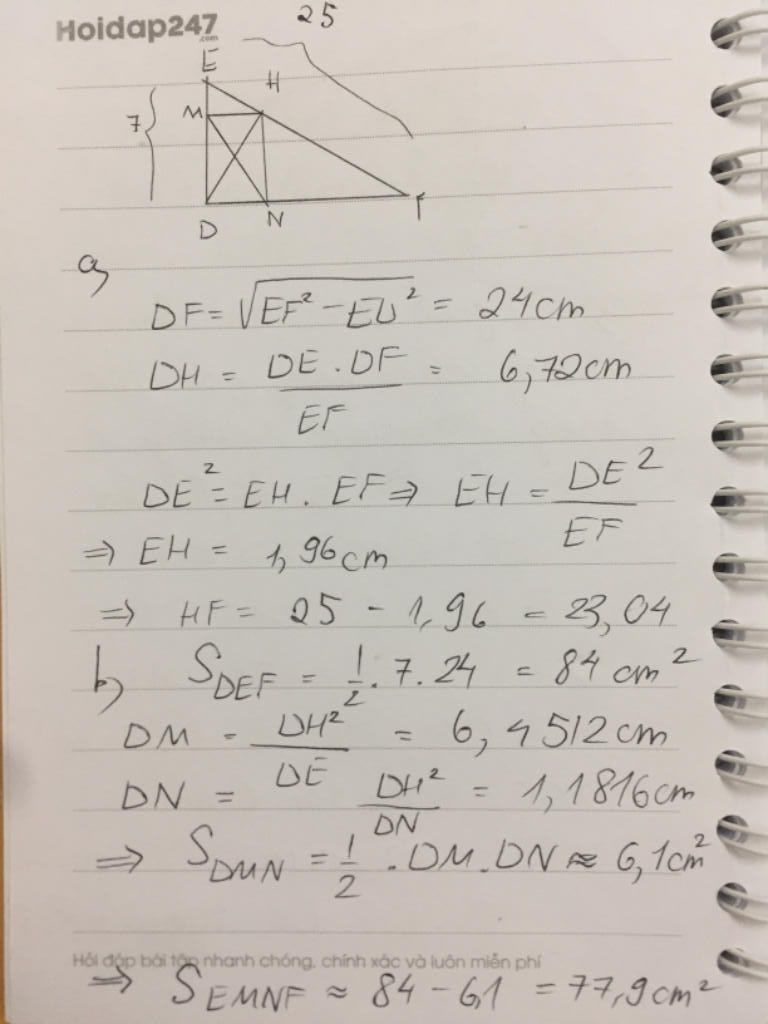 Hoidap247
.com
25
E
H
M
7
D
N
F
a,
DF = √EF² - ED² = 24cm
DH = DE . DF / EF = 6,72cm
DE² = EH . EF ⇒ EH = DE² / EF
⇒ EH = 1,96cm
⇒ HF = 25 - 1,96 = 23,04
b, S_DEF = 1/2 . 7 . 24 = 84 cm²
DM = DH² / DE = 6,4512cm
DN = DH² / DN = 1,1816cm
⇒ S_DMN = 1/2 . DM . DN ≈ 6,1cm²
Hỏi đáp bài tập nhanh chóng, chính xác và luôn miễn phí
⇒ S_EMNF ≈ 84 - 6,1 = 77,9cm²